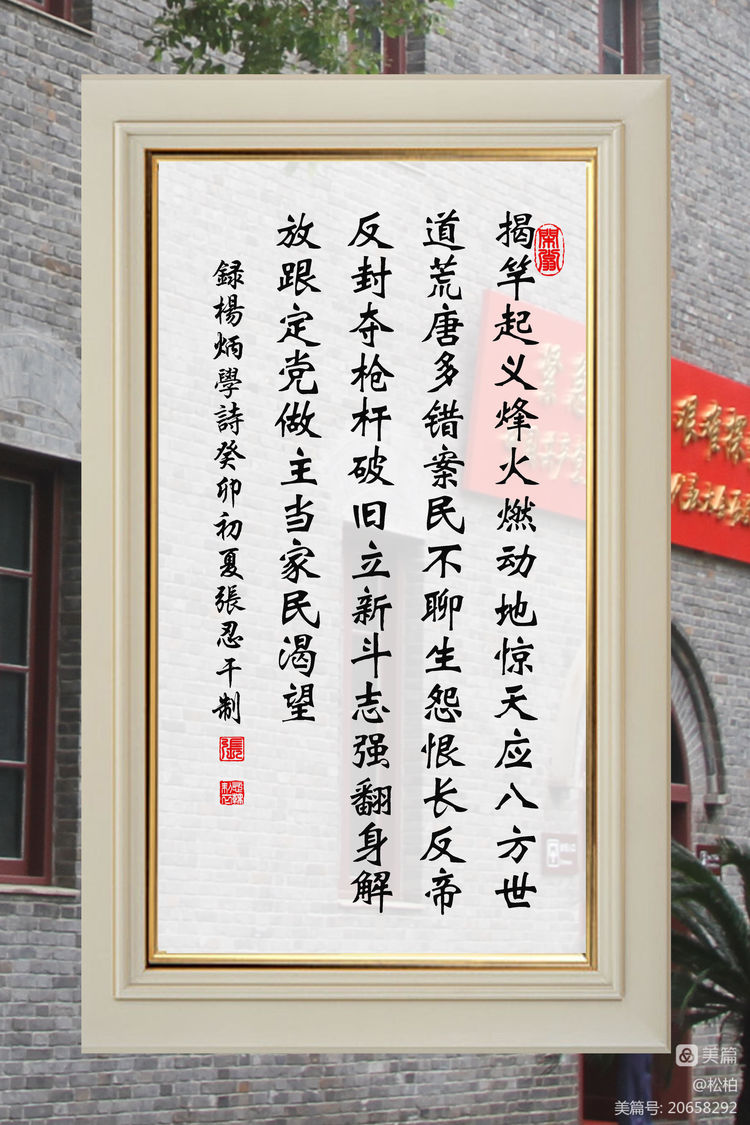 揭竿起义烽火燃动地惊天应八方世
道荒唐多错案民不聊生怨恨长反帝
反封夺枪杆破旧立新斗志强翻身解
放跟定党做主当家民渴望
録楊炳學詩癸卯初夏張忍干制
張
美篇
@松柏
美篇号: 20658292